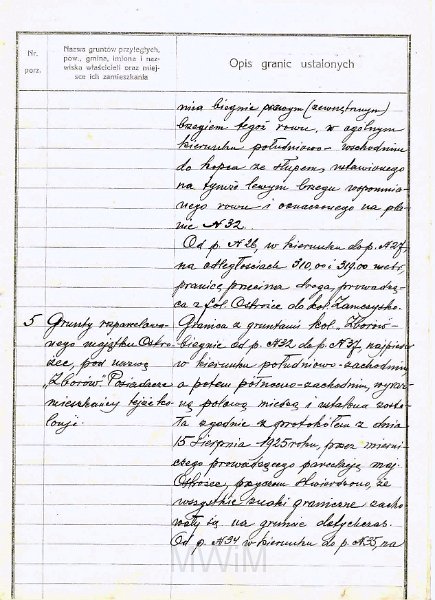 Nr. porz.
Nazwa gruntów przyległych,
pow., gmina, imiona i naz-
wiska właścicieli oraz miej-
sce ich zamieszkania
Opis granic ustalonych
nica biegnie prawym (zewnętrznym)
brzegiem tegoż rowu, w ogólnym
kierunku południowo-wschodnim
do kopca ze słupem, ustawionego
na tymże lewym brzegu wspomnia-
nego rowu i oznaczonego na pla-
nie N 32.
Od p. N 26, w kierunku do p. N 27,
na odległościach 310,0 i 319.00 metr,
granicę przecina droga, prowadzą-
ca z fol. Ostrożec do kol. Zamczysko.
5
Grunty rozparcelowa-
nego majątku Ostro-
żec, pod nazwą
"Zborów". Posiadacze
mieszkańcy tejże ko-
lonji.
Granica z gruntami kol. "Zborów"-
biegnie od p. N 32 do p. N 37, najpierw
w kierunku południowo-zachodnim
a potem północno-zachodnim,
ną polową miedzą i ustalona zosta-
ła zgodnie z protokółem z dnia
15 Sierpnia 1925 roku, przez mierni-
czego prowadzącego parcelację maj.
Ostrożec, przyczem stwierdzono, że
wszystkie znaki graniczne zacho-
wały się na gruncie dotychczas.
Od p. N 34 w kierunku do p. N 35, na
MWiM